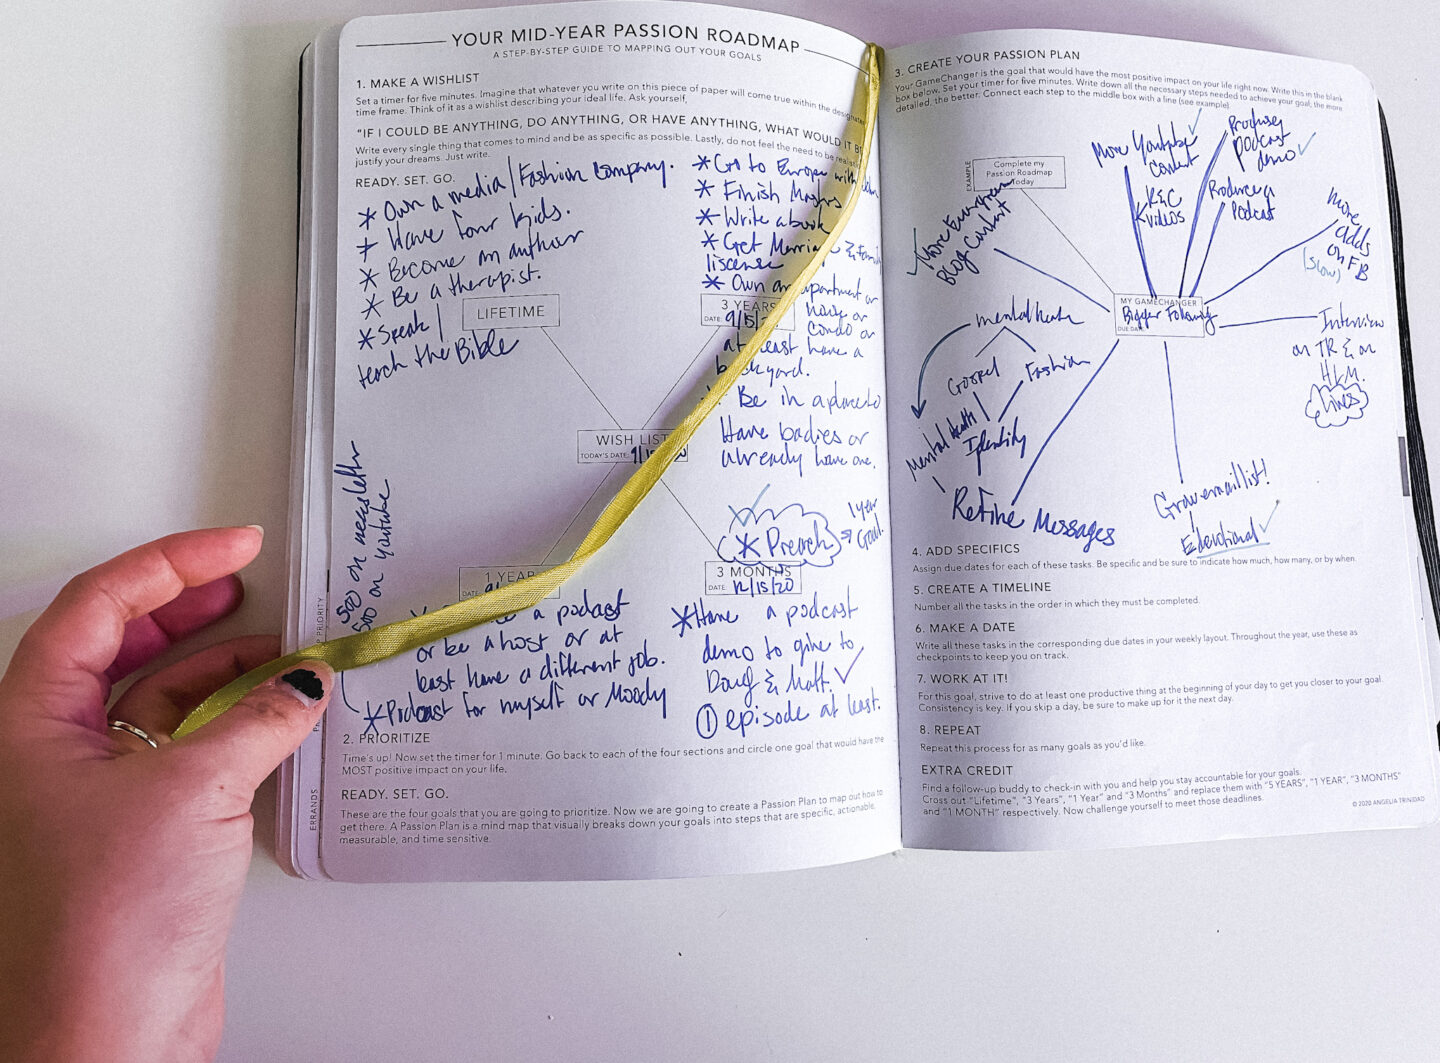 YOUR MID-YEAR PASSION ROADMAP
A STEP-BY-STEP GUIDE TO MAPPING OUT YOUR GOALS
1. MAKE A WISHLIST
Set a timer for five minutes. Imagine that whatever you write on this piece of paper will come true within the
time frame. Think of it as a wishlist describing your ideal life. Ask yourself,
"IF I COULD BE ANYTHING, DO ANYTHING, OR HAVE ANYTHING, WHAT WOULD IT B
Write every single thing that comes to mind and be as specific as possible. Lastly, do not feel the need to be
justify your dreams. Just write.
READY. SET. GO.
* Own a media/Fashion Company.
* Have four kids.
* Become an author
* Be a therapist.
* Speak/
teach the Bible
LIFETIME
* Go to Europe with
* Finish Masters
* Write a book
* Get Marriage & Family
liscense
* Own an apartment or
house or
condo or
at least have a
backyard.
3 YEARS
DATE: 9/15/
Be in a place to
Have babies or
already have one.
WISH LIST
TODAY'S DATE:
* Preach
1 year
Goal.
500 on newsletter
500 on youtube
1 YEAR
DATE:
a podcast
or be a host or at
least have a different job.
* Podcast for myself or Moody
3 MONTHS
DATE: 12/15/20
* Have a podcast
demo to give to
Doug & Matt. ✓
① episode at least.
2. PRIORITIZE
Time's up! Now set the timer for 1 minute. Go back to each of the four sections and circle one goal that would have the
MOST positive impact on your life.
READY. SET. GO.
These are the four goals that you are going to prioritize. Now we are going to create a Passion Plan to map out how to
get there. A Passion Plan is a mind map that visually breaks down your goals into steps that are specific, actionable,
measurable, and time sensitive.
PRIORITY
ERRANDS
3. CREATE YOUR PASSION PLAN
Your GameChanger is the goal that would have the most positive impact on your life right now. Write this in the blank
box below. Set your timer for five minutes. Write down all the necessary steps needed to achieve your goal, the more
detailed, the better. Connect each step to the middle box with a line (see example).
EXAMPLE
Complete my
Passion Roadmap
Today
More Youtube ✓
Content
K&C
Videos
Produse
podcast
demo ✓
Produce a
Podcast
more
adds
on FB
(slow)
More
Blog Content
MY GAMECHANGER
Bigger Following
DUE DATE
mental health
Gospel
Fashion
Mental Health
Identity
Refine Messages
Interview
on TR & on
HKM.
Lives
Grow email list!
Edevotional ✓
4. ADD SPECIFICS
Assign due dates for each of these tasks. Be specific and be sure to indicate how much, how many, or by when.
5. CREATE A TIMELINE
Number all the tasks in the order in which they must be completed.
6. MAKE A DATE
Write all these tasks in the corresponding due dates in your weekly layout. Throughout the year, use these as
checkpoints to keep you on track.
7. WORK AT IT!
For this goal, strive to do at least one productive thing at the beginning of your day to get you closer to your goal.
Consistency is key. If you skip a day, be sure to make up for it the next day.
8. REPEAT
Repeat this process for as many goals as you'd like.
EXTRA CREDIT
Find a follow-up buddy to check-in with you and help you stay accountable for your goals.
Cross out "Lifetime", "3 Years", "1 Year" and "3 Months" and replace them with "5 YEARS", "1 YEAR", "3 MONTHS"
and "1 MONTH" respectively. Now challenge yourself to meet those deadlines.
© 2020 ANGELIA TRINIDAD